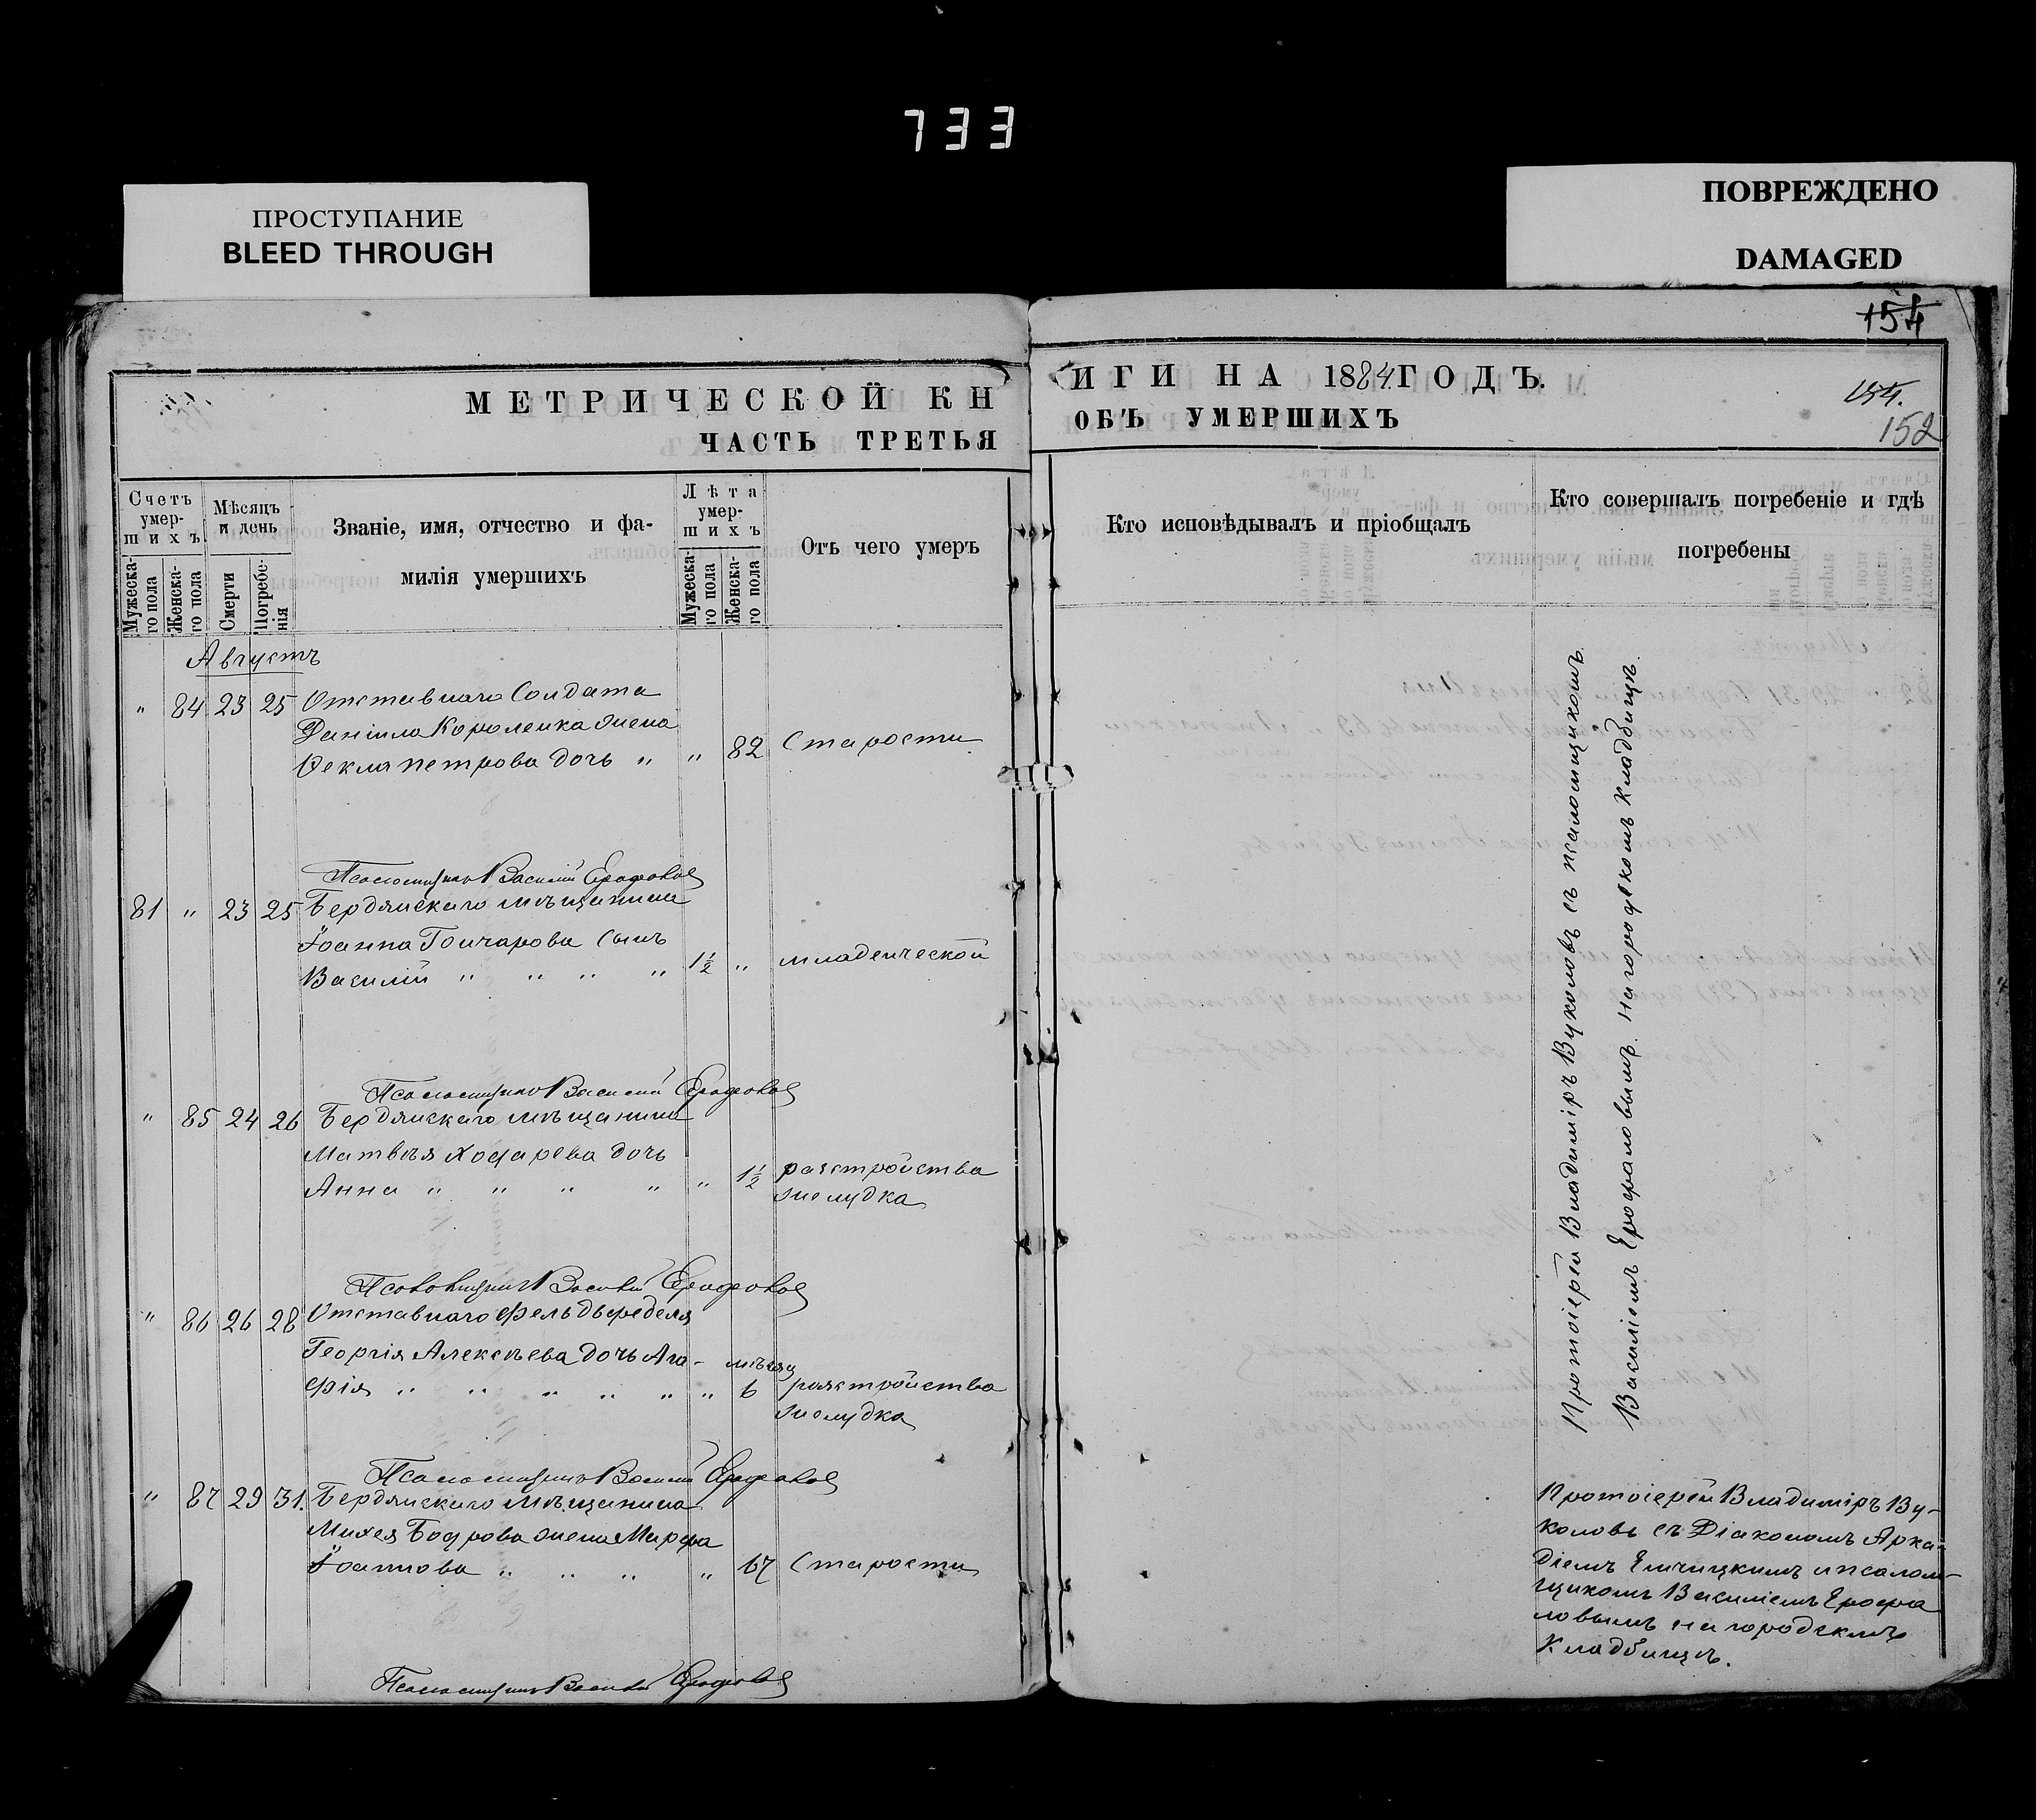 733
ПРОСТУПАНИЕ
BLEED THROUGH
ПОВРЕЖДЕНО
DAMAGED
154
154.
152
МЕТРИЧЕСКОЙ КН
ИГИ НА 1884 ГОДЪ.
ЧАСТЬ ТРЕТЬЯ
ОБЪ УМЕРШИХЪ
Счетъ умер-
шихъ
Мужеска-
го пола
Женска-
го пола
Мѣсяцъ
и день
Смерти
Погребе-
нія
Званіе, имя, отчество и фа-
милія умершихъ
Лѣта
умер-
шихъ
Мужеска-
го пола
Женска-
го пола
Отъ чего умеръ
Кто исповѣдывалъ и пріобщалъ
Кто совершалъ погребеніе и гдѣ
погребены
Августъ
" 84 23 25 Отставнаго Солдата
Даніила Короленка жена
Ѳекла Петрова дочь " " 82 Старости
Псаломщикъ Василій Ерофаловъ
81 " 23 25 Бердянскаго мѣщанина
Іоанна Гончарова сынъ
Василій " " " " 1½ " младенческой
Псаломщикъ Василій Ерофаловъ
" 85 24 26 Бердянскаго мѣщанина
Матвѣя дочь
Анна " " " " " 1½ разстройства
желудка
Псаломщикъ Василій Ерофаловъ
" 86 26 28 Отставнаго фельдфебеля
Георгія Алексѣева дочь Ага-
мѣсяц
фія " " " " " " 6 разстройства
желудка
Псаломщикъ Василій Ерофаловъ
" 87 29 31. Бердянскаго мѣщанина
Михея Бодрова жена Марфа
Іоаннова " " " " 67 Старости
Псаломщикъ Василій Ерофаловъ
Протоіерей Владиміръ Вуколовъ съ псаломщикомъ
Василіемъ Ерофаловымъ. На городскомъ кладбищѣ.
Протоіерей Владиміръ Ву-
коловъ съ Діакономъ Арка-
діемъ и псалом-
щикомъ Василіемъ Ерофа
ловымъ на городскмъ
Кладбищѣ.